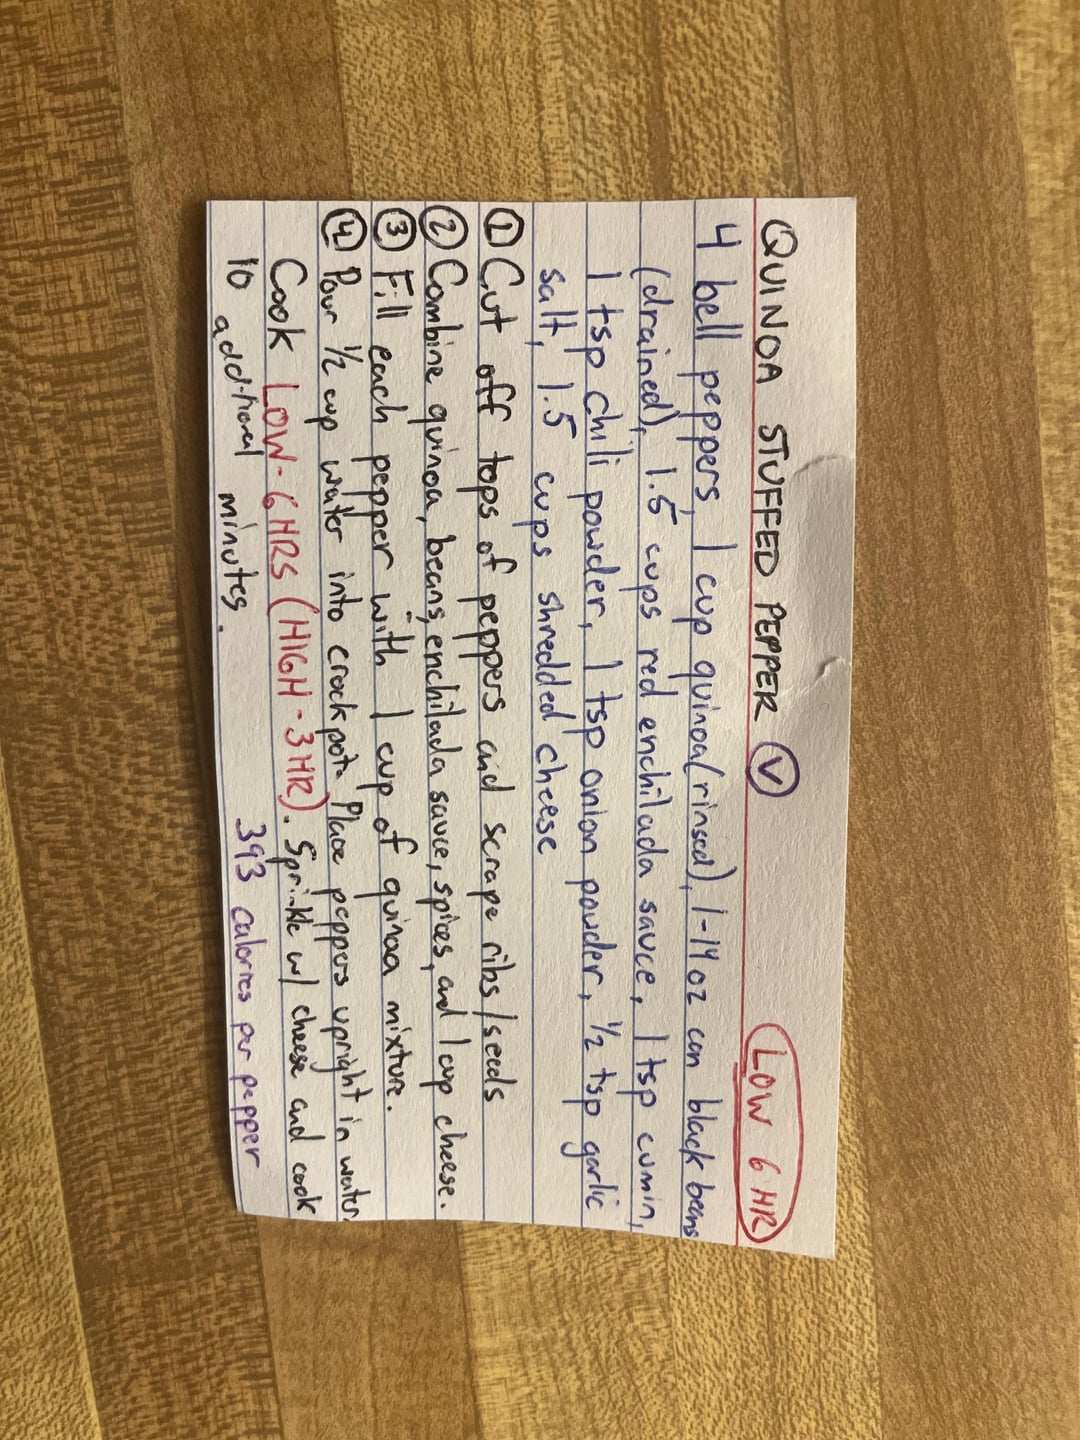 QUINOA STUFFED PEPPER V LOW 6 HR
4 bell peppers, 1 cup quinoa (rinsed), 1-14 oz can black beans
(drained), 1.5 cups red enchilada sauce, 1 tsp cumin,
1 tsp chili powder, 1 tsp onion powder, 1/2 tsp garlic
salt, 1.5 cups shredded cheese
1 Cut off tops of peppers and scrape ribs/seeds
2 Combine quinoa, beans, enchilada sauce, spices, and 1 cup cheese.
3 Fill each pepper with 1 cup of quinoa mixture.
4 Pour 1/2 cup water into crockpot. Place peppers upright in water.
Cook LOW-6HRS (HIGH-3HR). Sprinkle w/ cheese and cook
10 additional minutes. 393 calories per pepper